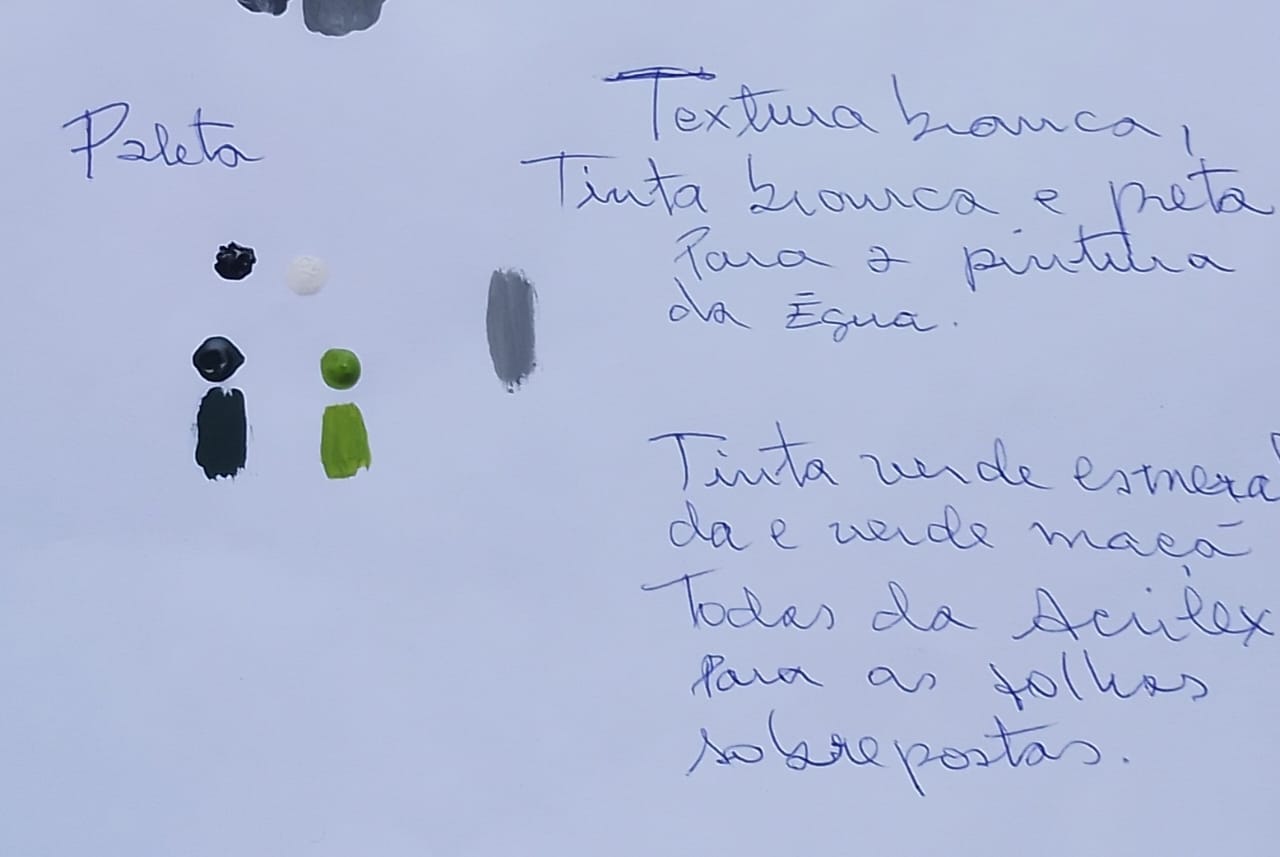 Paleta
Textura branca,
Tinta branca e preta
Para a pintura
da Égua.
Tinta verde esmeral
da e verde maçã
Todas da Acrilex
Para as folhas
sobrepostas.